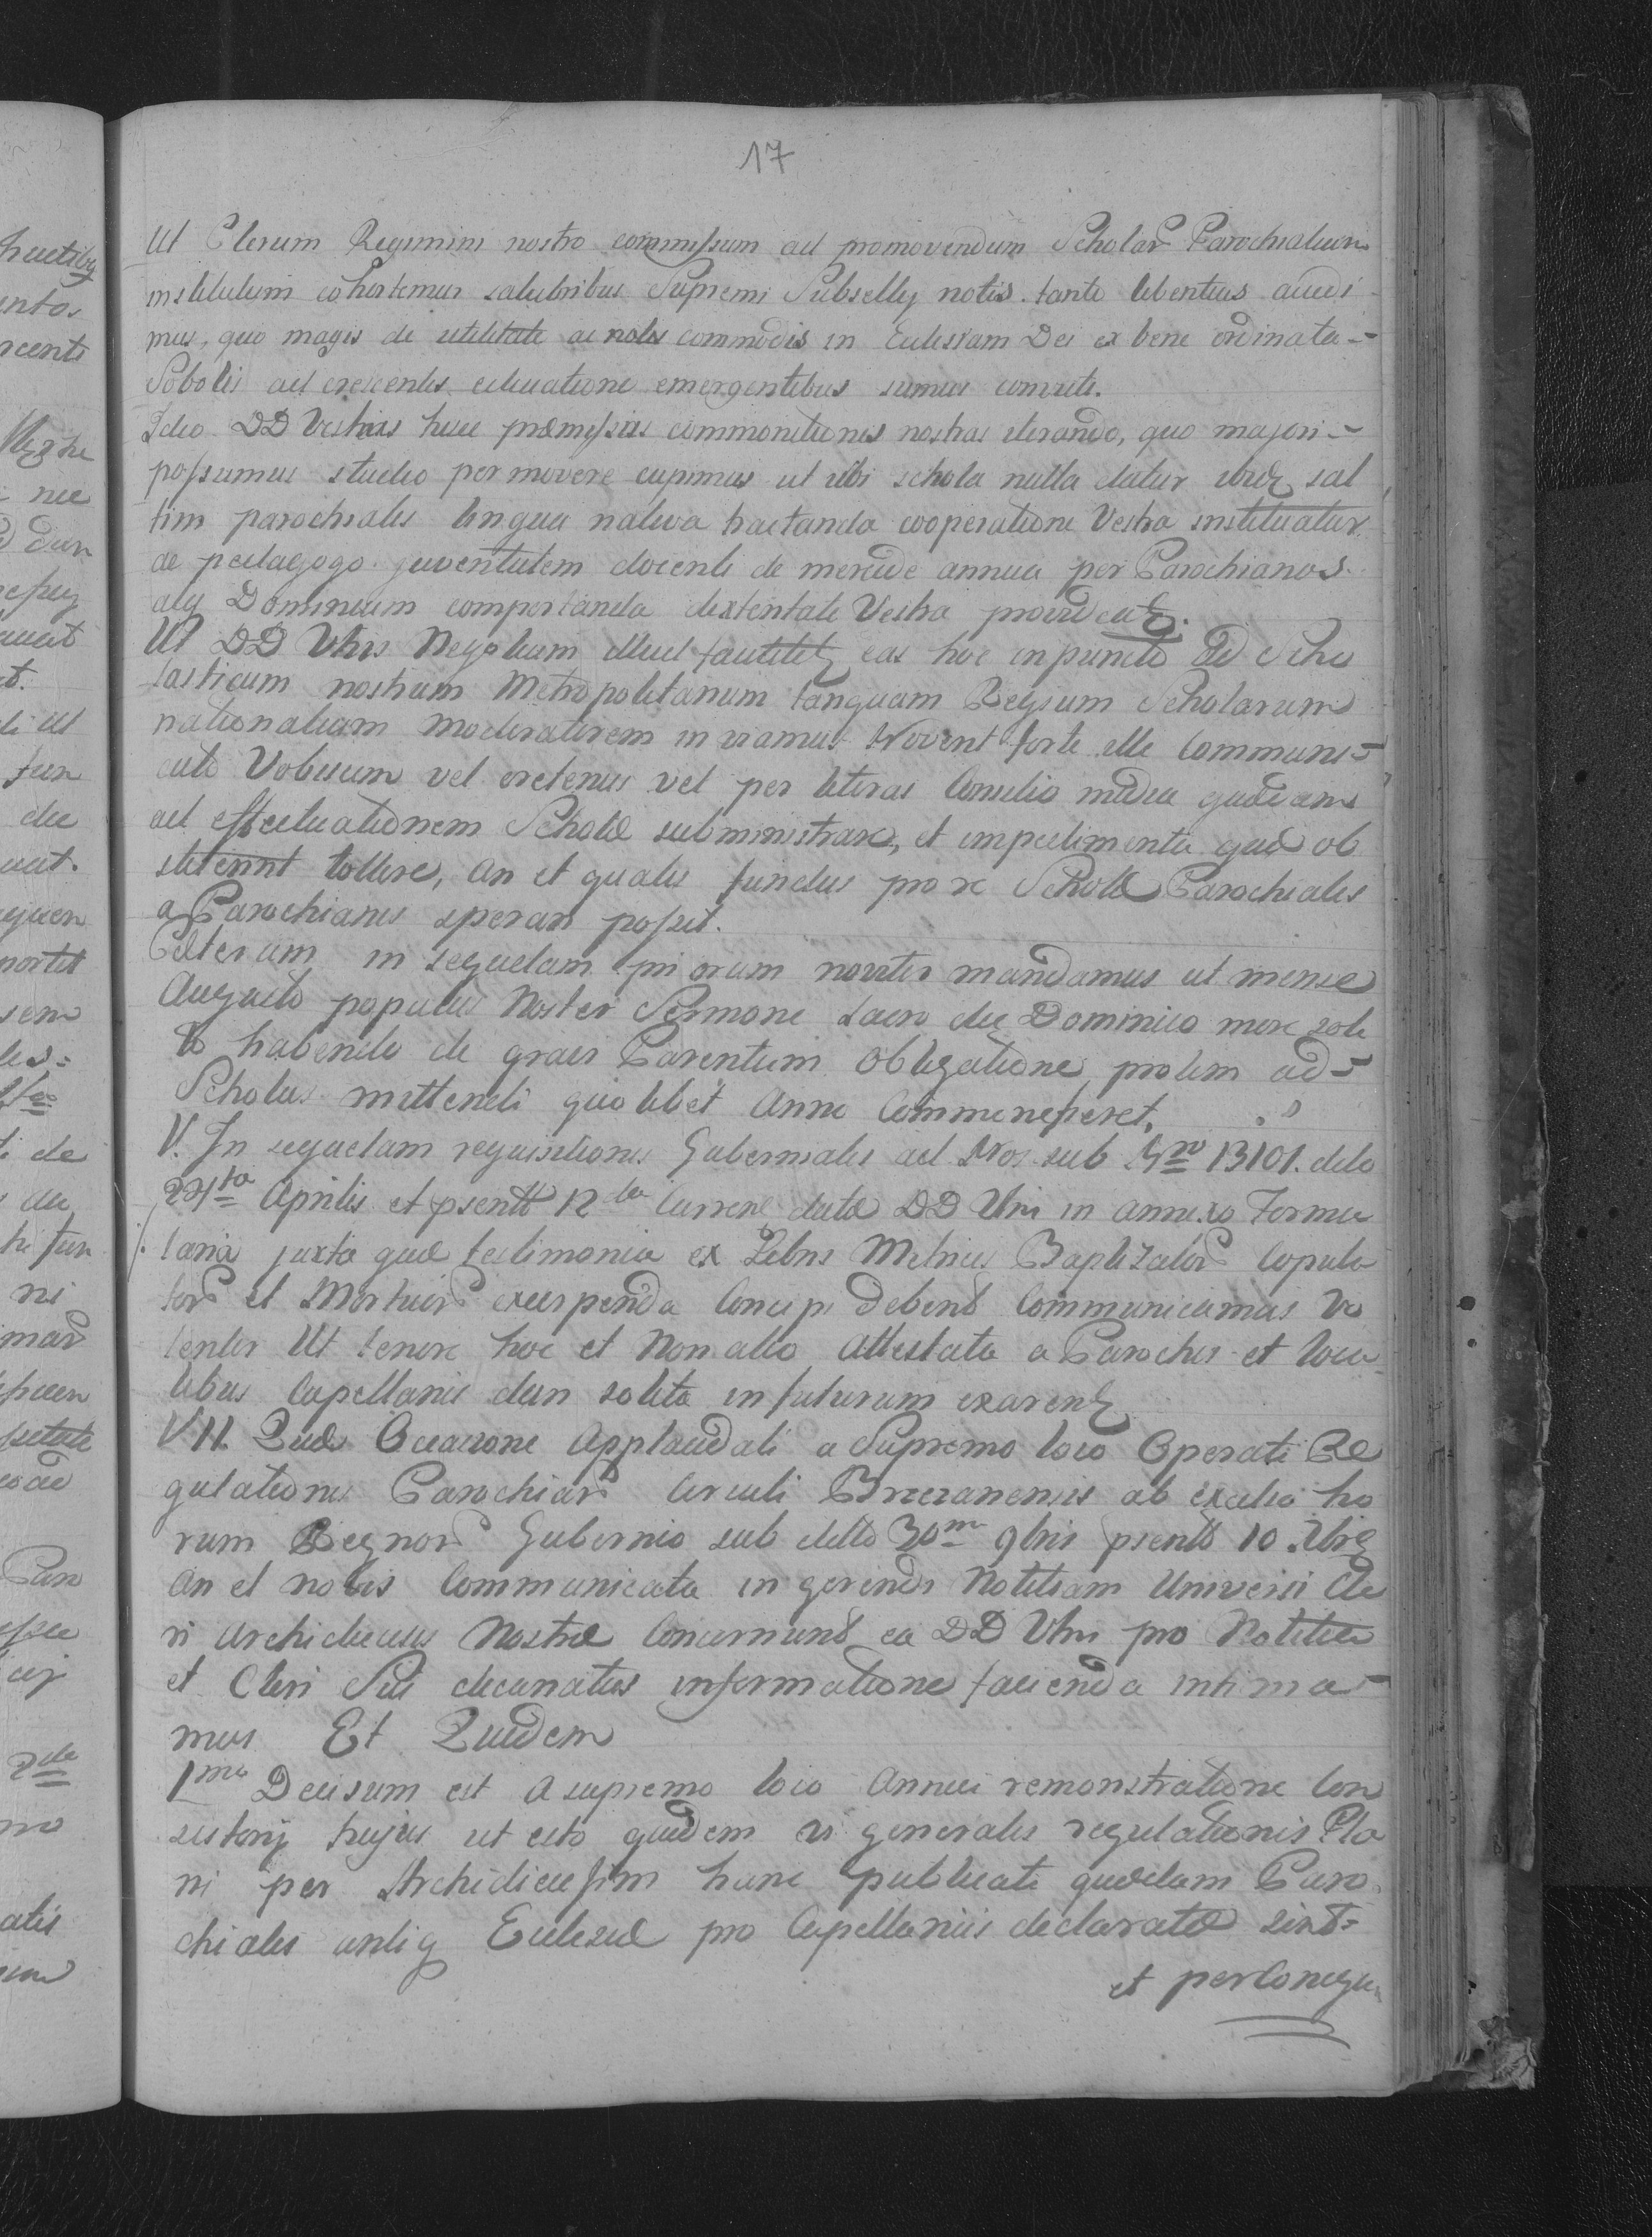 17
Ut Clerum Regimini nostro commissum ad promovendum Scholar Parochialium
institutum cohortemur salubribus Supremi Subsellÿ notis tanto libentius audi
mus, quo magis de utilitate ac commodis in Eclesiam Dei ex bene ordinata -
Sobolis adcrescentis educatione emergentibus sumus
Ideo DD Vestras hisce præmissas commonitiones nostras iterando, quo majori -
possumus studio permovere cupimus ut ubi schola nulla datur ibidz sal
tim parochialis lingua nativa tractanda cooperatione Vestra instituatur
ac pedagogo juventutem docenti de mercede annua per Parochianos
atq Dominium comportanda dexteritate Vestra
Ut DD Vtris Negotium illud facilitetz eas hoc in puncto ad Scho
lasticum nostrum Metropolitanum tanquam Regium Scholarum
nationalium Moderatorem inviamus. Noverit forte ille Communi =
cato Vobiscum vel oretenus vel per literas Consilio media quædam
ad effectuationem Scholæ subministrare, et impedimenta quæ ob
stiterint tollere, an et qualis fundus pro re Scholæ Parochialis
a Parochianis sperari possit.
Cæterum in sequelam priorum noviter mandamus ut mense
Augusto populus Noster Sermone Sacro die Dominico more soli
to habendo de gravi Parentum Obligatione prolem ad =
Scholas mittendi quolibet Anno Commonefieret.
V. In sequelam requisitionis Gubernialis ad Nos sub Nro 13101. ddo
Aprilis et psentt 12 Currentz datæ DD Vtris in annexo Formu
laria juxta quæ testimonia ex Libris Metricis Baptizator Copula
tor et Mortuor excerpenda Concipi debent Communicamus Vo
lentes Ut tenore hoc et Non alio Attestata a Parochis et loca
libus Capellanis dari solita in futurum exarentz
VII. Quæ Occasione Applacidati a Supremo loco Operati Re
gulationis Parochiar Circuli Brzezanensis ab excelso ho
rum Regnor Gubernio sub ddto 30m 9bris psentt 10 Xbris
an et nobis Communicata in gerendi Notitiam Universi Cle
ri Archidiecesis Nostræ Concernunt ea DD Vtris pro Notitia
et Cleri Sui decanatus informatione facienda intima -
mus Et Quidem
1mo Decisum est a supremo loco Annui remonstratione Con
sistorÿ hujus ut cito quidem vi generalis regulationis Pla
ni per Archidiecesim hanc publicati quædam Paro
chiales antiq Eclesiæ pro Capellaniis declaratæ sint =
et perConsequ